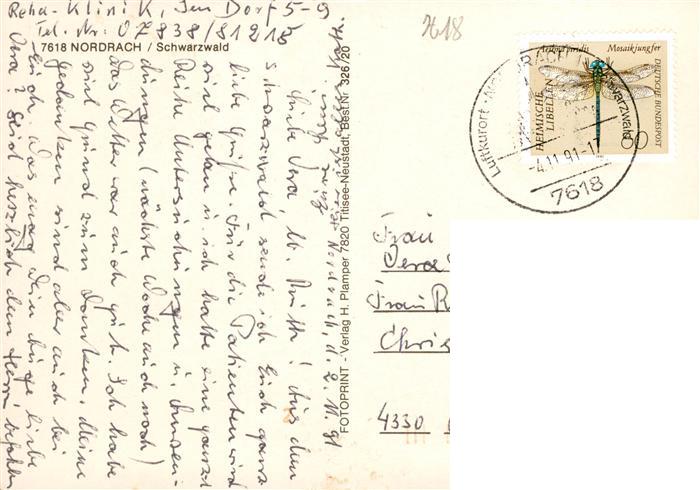 Reha-Klinik, Im Dorf 5-9
Tel. Nr. 07838/81215
7618 NORDRACH / Schwarzwald
7618
Nordrach, d. 2.11.91
liebe Vera, lb. Ruth! Aus dem
Schwarzwald sende ich Euch ganz
liebe Grüße. Für die Patienten wird
viel getan u. ich hatte eine ganze
Reihe Untersuchungen u. Anwen-
dungen (nächste Woche auch noch)
das Wetter war auch gut. Ich habe
viel Grund zum Danken. Meine
Gedanken sind aber auch bei
Euch. Was mag Dein Auge liebe
Vera? Seid herzlich dem Herrn befohlen
FOTOPRINT - Verlag H. Plamper 7820 Titisee-Neustadt, Best.Nr. 326/20
Aeshna viridis Mosaikjungfer
HEIMISCHE LIBELLEN
DEUTSCHE BUNDESPOST
60
Luftkurort
RACH
Schwarzwald
-4.11.91-17
7618
Frau
Vera
Frau R
Chris
4330